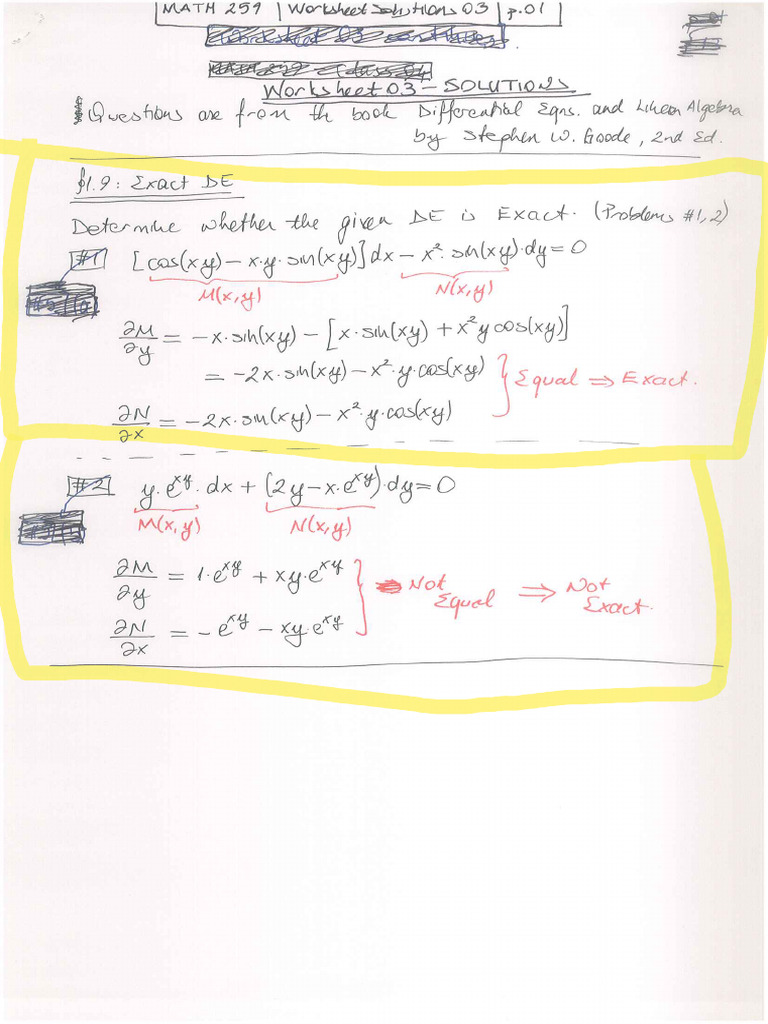 MATH 259 | Worksheet Solutions 03 | p.01
Worksheet 03 – SOLUTIONS
Questions are from th book Differential Eqns. and Linear Algebra
by Stephen W. Goode, 2nd Ed.
§1.9: Exact DE
Determine whether the given DE is Exact. (Problems #1, 2)
#1 [cos(xy) – x·y·sin(xy)]dx – x²·sin(xy)·dy = 0
M(x,y) N(x,y)
∂M/∂y = –x·sin(xy) – [x·sin(xy) + x²y cos(xy)]
= –2x·sin(xy) – x²·y·cos(xy) } Equal ⇒ Exact.
∂N/∂x = –2x·sin(xy) – x²·y·cos(xy)
#2 y·e^xy·dx + (2y – x·e^xy)·dy = 0
M(x,y) N(x,y)
∂M/∂y = 1·e^xy + xy·e^xy } Not Equal ⇒ Not Exact.
∂N/∂x = –e^xy – xy·e^xy